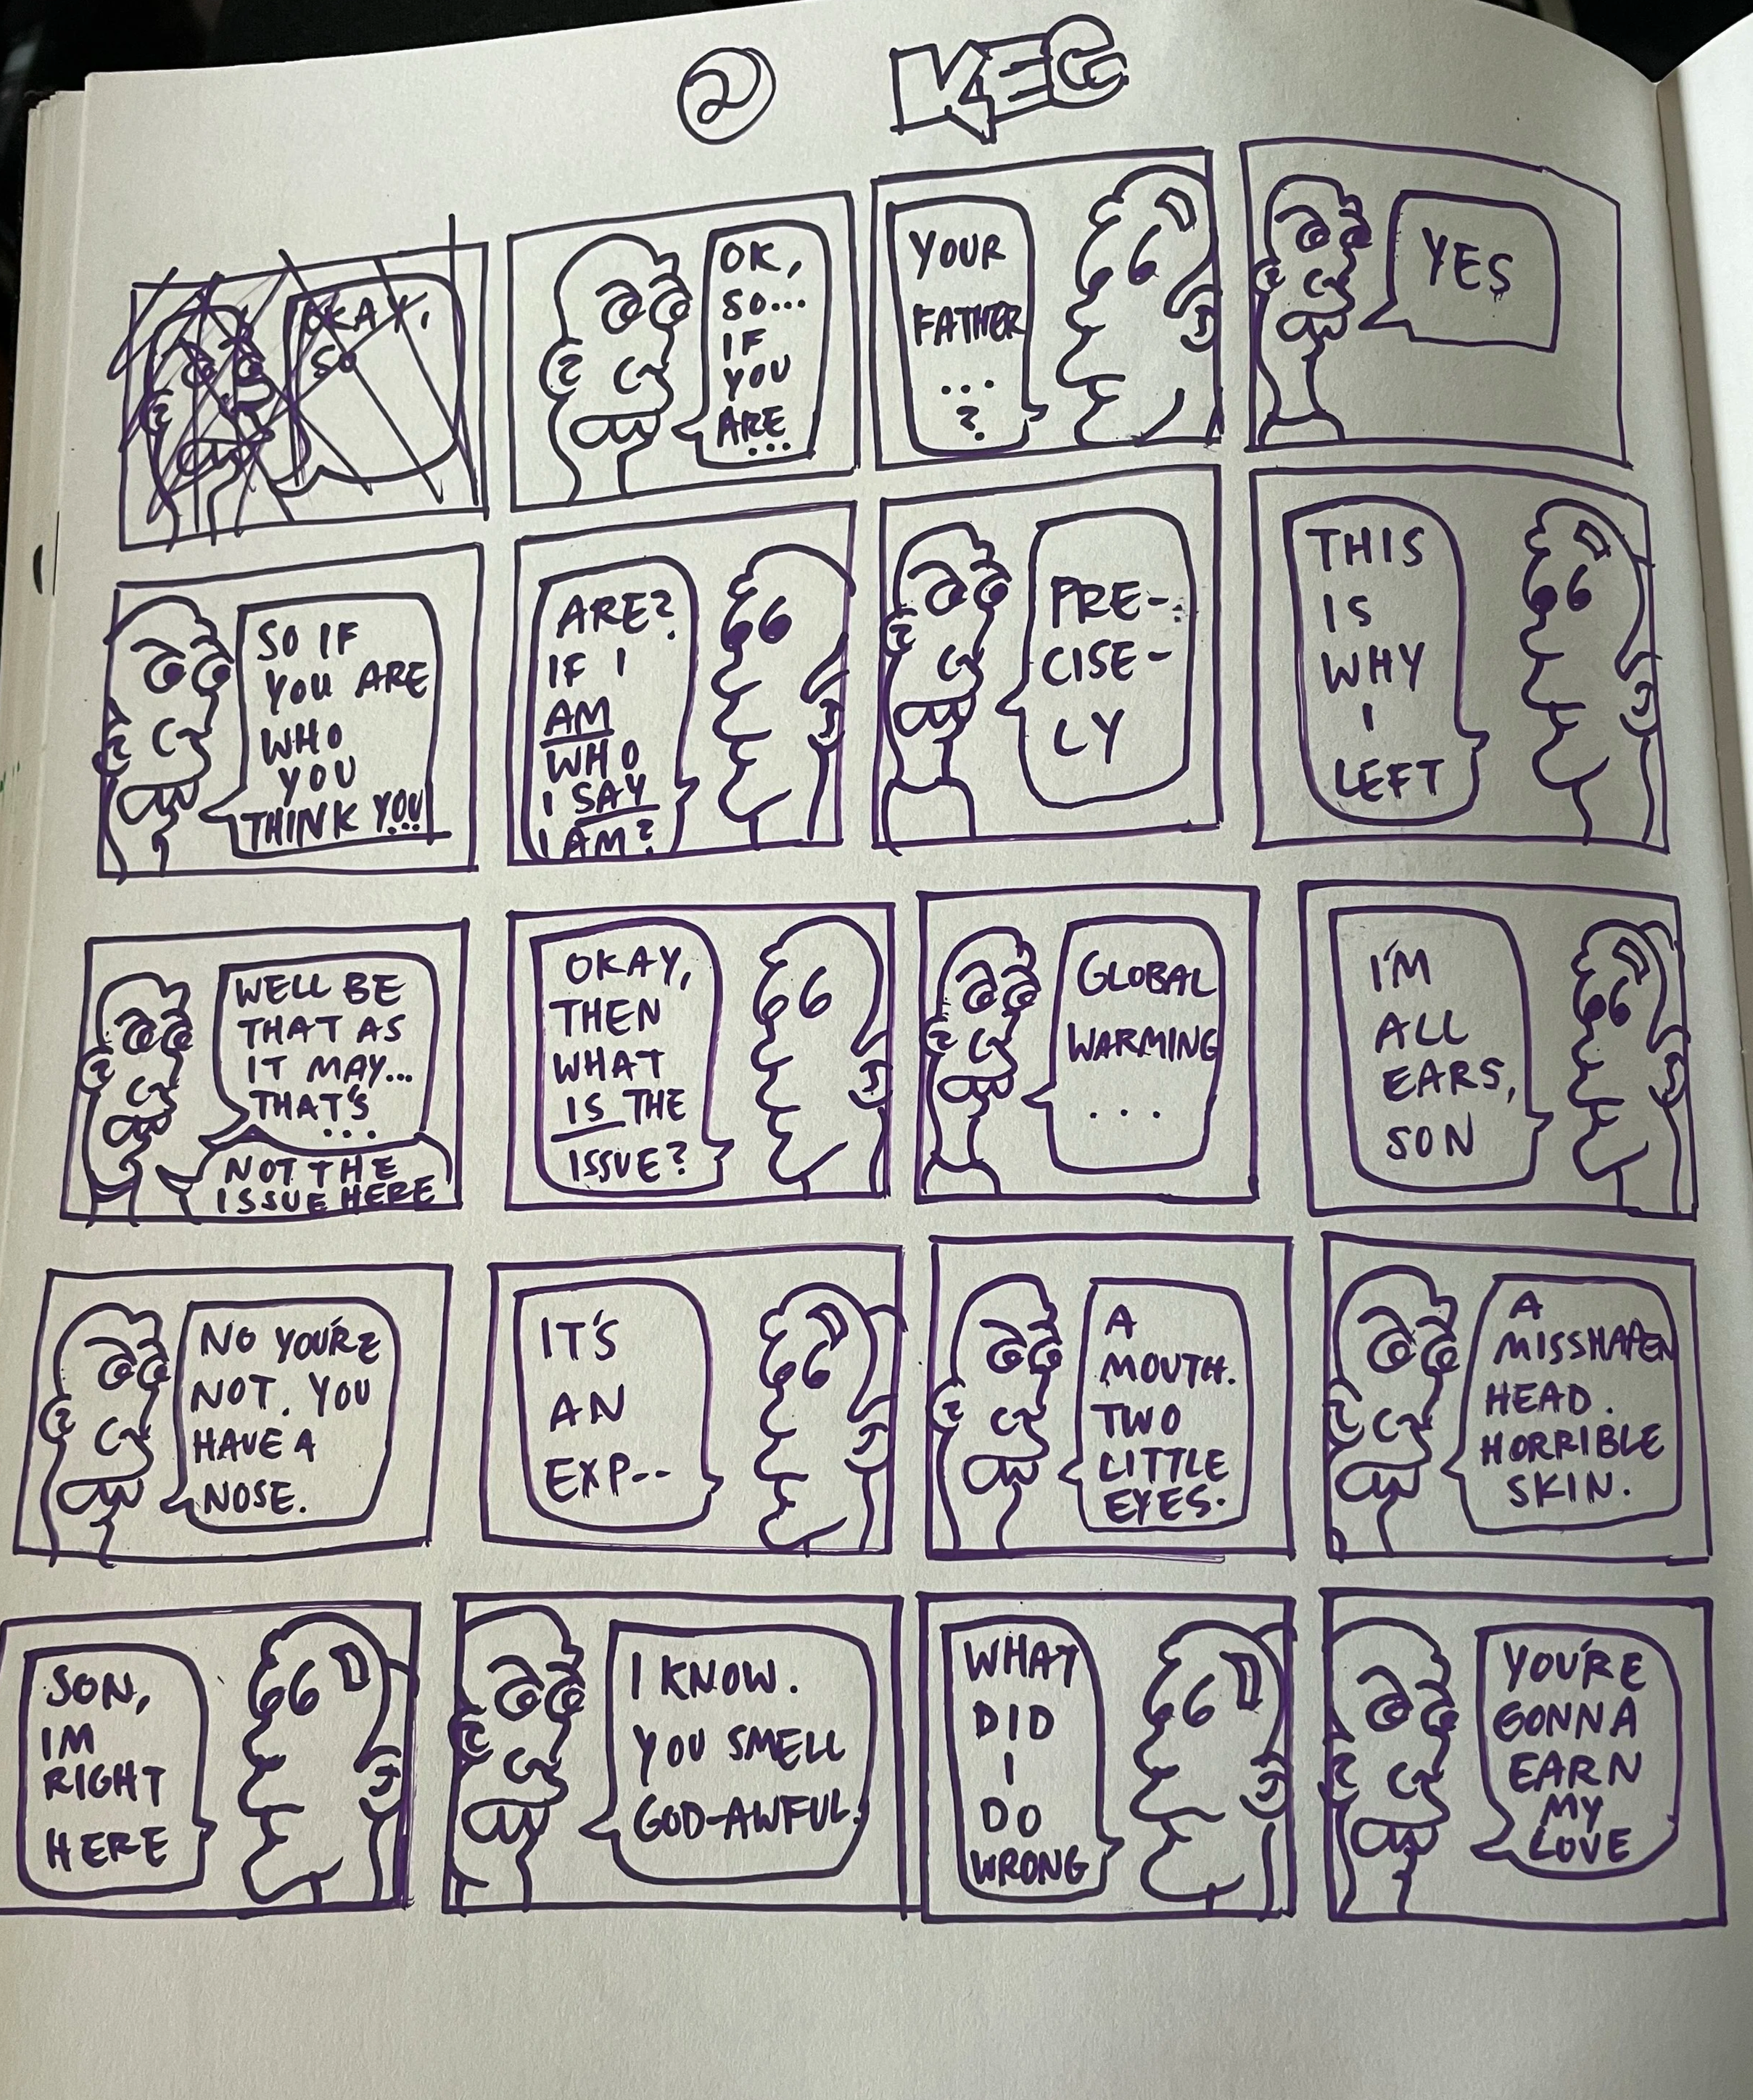 2
KEG
OKAY,
SO
OK,
SO...
IF
YOU
ARE
...
YOUR
FATHER
...
?
YES
SO IF
YOU ARE
WHO
YOU
THINK YOU
...
ARE?
IF I
AM
WHO
I SAY
I AM?
PRE-
CISE-
LY
THIS
IS
WHY
I
LEFT
WELL BE
THAT AS
IT MAY...
THAT'S
...
NOT THE
ISSUE HERE
OKAY,
THEN
WHAT
IS THE
ISSUE?
GLOBAL
WARMING
...
I'M
ALL
EARS,
SON
NO YOU'RE
NOT. YOU
HAVE A
NOSE.
IT'S
AN
EXP--
A
MOUTH.
TWO
LITTLE
EYES.
A
MISSHAPEN
HEAD.
HORRIBLE
SKIN.
SON,
IM
RIGHT
HERE
I KNOW.
YOU SMELL
GOD-AWFUL.
WHAT
DID
I
DO
WRONG
YOU'RE
GONNA
EARN
MY
LOVE